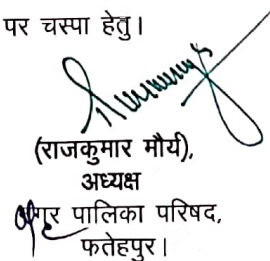 पर चस्पा हेतु।
(राजकुमार मौर्य),
अध्यक्ष
नगर पालिका परिषद,
फतेहपुर।